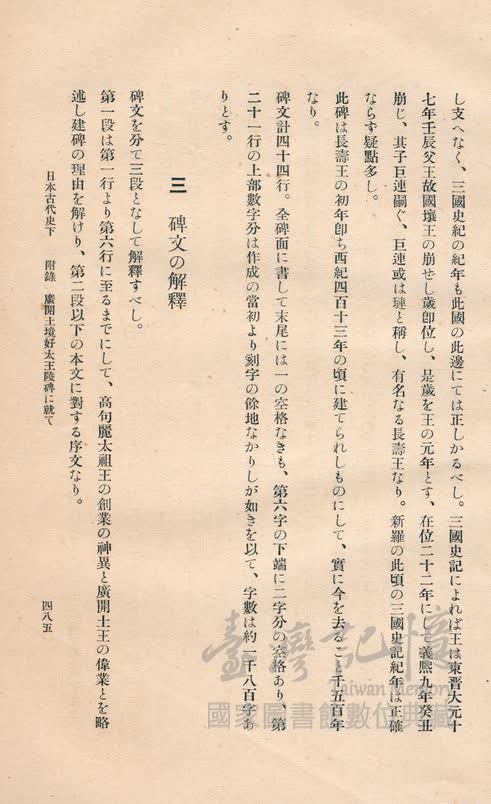 し支へなく、三國史紀の紀年も此國の此邊にては正しかるべし。三國史記によれば王は東晋大元十
七年壬辰父王故國壤王の崩ぜし歲卽位し、是歲を王の元年とす、在位二十二年にして義熙九年癸丑
崩じ、其子巨連嗣ぐ、巨連或は璉と稱し、有名なる長壽王なり。新羅の此頃の三國史記紀年は正確
ならず疑點多し。
此碑は長壽王の初年卽ち西紀四百十三年の頃に建てられしものにして、實に今を去ること千五百年
なり。
碑文計四十四行。全碑面に書して末尾には一の空格なきも、第六字の下端に二字分の空格あり、第
二十一行の上部數字分は作成の當初より刻字の餘地なかりしが如きを以て、字數は約一千八百字あ
りとす。
三 碑文の解釋
碑文を分て三段となして解釋すべし。
第一段は第一行より第六行に至るまでにして、高句麗太祖王の創業の神異と廣開土王の偉業とを略
述し建碑の理由を解けり、第二段以下の本文に對する序文なり。
日本古代史下 附錄 廣開土境好太王陵碑に就て
四八五
臺灣記憶
Taiwan Memory
國家圖書館數位典藏